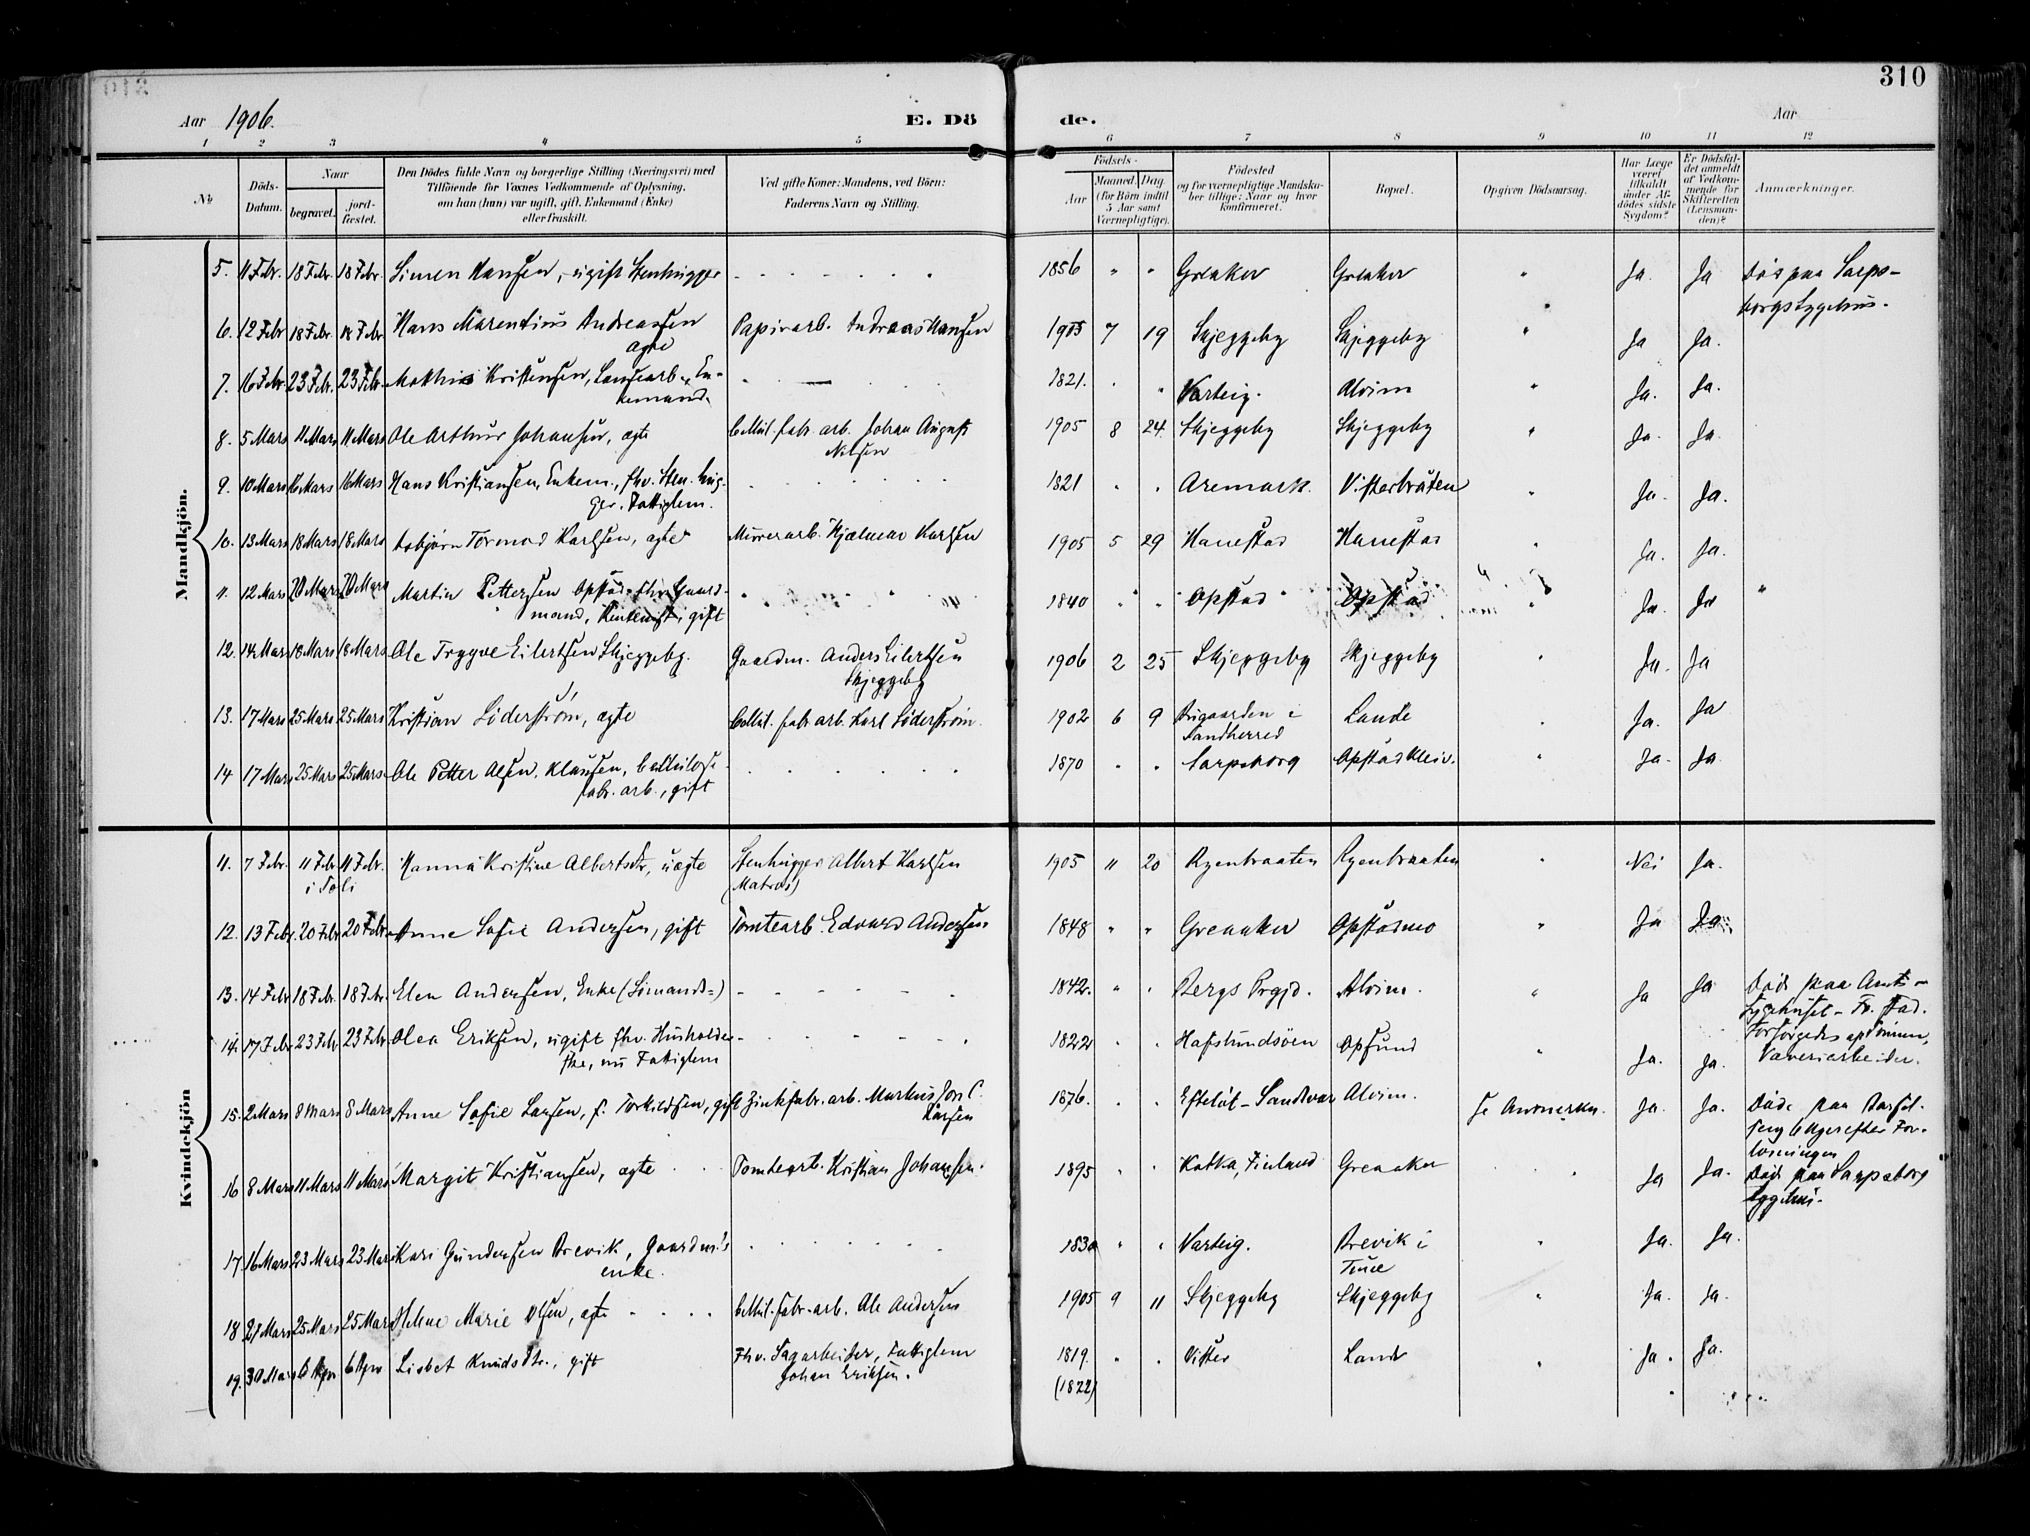 310
Aar 1906. E. Dö de. Aar
1 2 3 4 5 6 7 8 9 10 11 12
No
Döds-
Datum.
Naar
begravet.
jord-
fæstet.
Den Dödes fulde Navn og borgerlige Stilling (Næringsvei) med
Tilföiende for Voxnes Vedkommende af Oplysning,
om han (hun) var ugift, gift, Enkemand (Enke)
eller fraskilt.
Ved gifte Koner: Mandens, ved Börn:
Faderens Navn og Stilling.
Födsels-
Aar
Maaned. Dag.
(for Börn indtil
5 Aar samt
Værnepligtige).
Födested
og for værnepligtige Mandska-
ber tillige: Naar og hvor
konfirmeret.
Bopæl.
Opgiven Dödsaarsag.
Har Læge
været
tilkaldt
under Af-
dödes sidste
Sygdom?
Er Dödsfal-
det anmeldt
af Vedkom-
mende for
Skifteretten
(Lensman-
den)?
Anmærkninger.
Mandkjön.
5. 11 Febr. 18 Febr. 18 Febr. Simen Hansen, ugift Stenhugger 1856 " " Greaker Greaker " Ja. Ja Död paa Sarps-
borgs Sygehus.
6. 12 Febr 18 Febr 18 Febr. Hans Marentius Andreassen Papirarb. Andreas Hansen 1905 7 19 Skjeggeby Skjeggeby " Ja Ja.
ægte
7. 16 Febr. 23 Febr. 23 Febr. Mathis Kristensen, Lausearb., En- 1821. " " Varteig. Alvim " Ja. Ja.
kemand.
8. 5 Mars 11 Mars 11 Mars Ole Arthur Johansen, ægte Cellul. fabr. arb. Johan August 1905 8 24. Skjeggeby Skjeggeby " Ja. Ja.
Nilsen
9. 10 Mars 16 Mars 16 Mars Hans Kristiansen, Enkem., fhv. Stenhug- 1821 " " Aremark. Visterbråten " Ja. Ja.
ger. Fattiglem.
10. 13 Mars 18 Mars 18 Mars Asbjørn Tormod Karlsen, ægte Murerarb. Hjalmar Karlsen 1905 5 29 Hanestad Hanestad " Ja. Ja.
11. 12 Mars 20 Mars 20 Mars Martin Pettersen Opstad, fhv. Gaard- 1840 " " Opstad Opstad " Ja. Ja "
mand, Rentenist, gift
12. 14 Mars 18 Mars 18 Mars Ole Trygve Eilertsen Skjeggeby. Gaardm. Anders Eilertsen 1906 2 25 Skjeggeby Skjeggeby " Ja. Ja
Skjeggeby
13. 17 Mars 25 Mars 25 Mars Kristian Söderström, ægte Cellul. fabr. arb. Karl Söderström. 1902 6 9 Brigaarden i Lande " Ja. Ja
Sandherred
14 17 Mars 25 Mars 25 Mars Ole Petter Olsen Klausen, Cellulose- 1870 " " Sarpsborg Opstadkleiv. " Ja. Ja
fabr. arb., gift
Kvindekjön
11. 7 Febr. 11 Febr 11 Febr. Hanna Kristine Albertsdtr, uægte Stenhugger Albert Karlsen 1905 11 20 Ryenbraaten Ryenbraaten " Nei Ja.
i Soli (Matros)
12. 13 Febr. 20 Febr 20 Febr. Anne Sofie Andersen, gift Tomtearb. Edvard Andersen 1848 " " Greaaker Opstadmo " Ja Ja
13. 14 Febr 18 Febr. 18 Febr. Elen Andersen, Enke (Sömands-) 1842. " " Bergs Prgjd. Alvim. " Ja Ja Död paa Amts-
sygehuset - Fr. stad.
14. 17 Febr 23 Febr. 23 Febr. Olea Eriksen, ugift fhv. Husholder- 1822 " " Hafslundsöen Opsund " Ja. Ja. Forsörgedes af Sönnen,
ske, nu Fattiglem Væveriarbeider.
15. 2 Mars 8 Mars 8 Mars Anne Sofie Larsen, f. Torkildsen, gift Zinkfabr. arb. Markus Joh. C. 1876. " " Eftelöt - Sandsvær Alvim. Se Anmerkn. Ja. Ja. Döde paa Barsel-
Larsen seng 6 Uger efter For-
lösningen
16 8 Mars 11 Mars 11 Mars Margit Kristiansen, ægte Tomtearb. Kristian Johansen. 1895 " " Kotka, Finland Greaaker " Ja Ja. Död paa Sarpsborg
Sygehus.
17 16 Mars 23 Mars 23 Mars Kari Gundersen Brevik, Gaardm.s 1830 " " Varteig. Brevik i " Ja. Ja.
enke. Tune
18 21 Mars 25 Mars 25 Mars Helene Marie Olsen, ægte Cellul. fabr. arb. Ole Andersen 1905 9 11 Skjeggeby Skjeggeby " Ja. Ja.
19. 30 Mars 6 Apr 6 Apr Lisbet Knudsdtr., gift Fhv. Sagarbeider, Fattiglem 1819. " " Vister Lande " Ja. Ja.
Johan Eriksen. (1822)